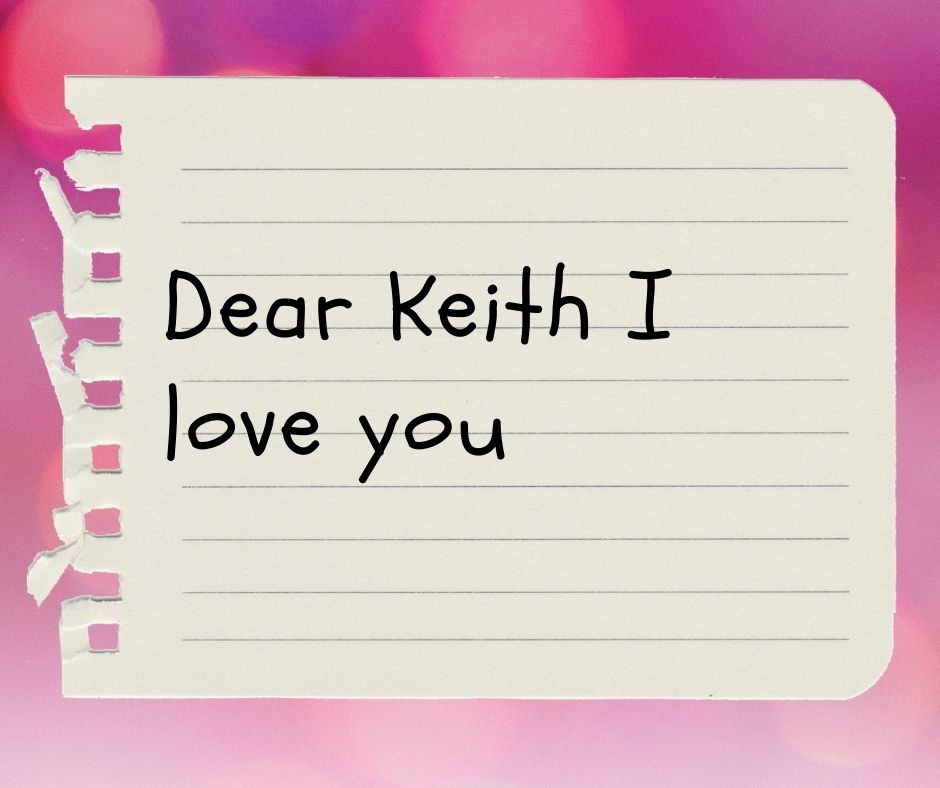 Dear Keith I
love you